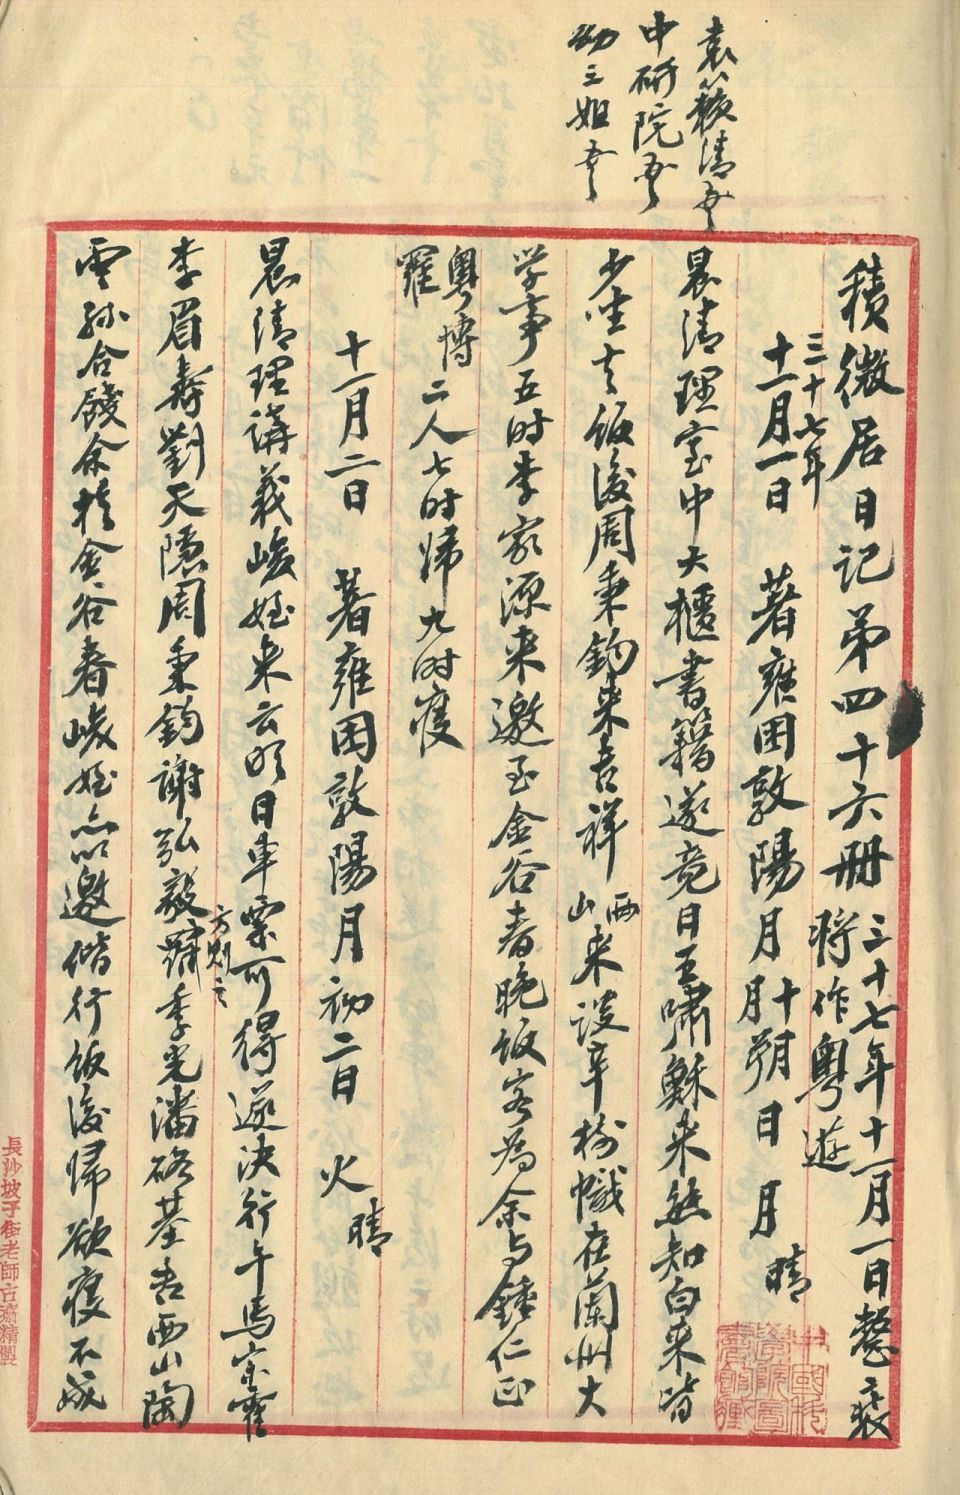 袁籟清書
中研院書
幼三姐書
積微居日記第四十六册 三十七年十一月一日整裝
將作粤遊
三十七年
十一月一日 著雍困敦陽月 十月朔日 月 晴
晨清理室中大櫃書籍遂竟日王嘯穌来熊知白来皆
少坐去飯後周秉鈞来吉祥 西山 来談辛樹幟在蘭州大
学事五时李家源来邀至金谷春晚飯客為余与鍾仁正
粤博
羅 二人七时帰九时寝
十一月二日 著雍困敦陽月初二日 火 晴
晨清理講義峻姪来云明日車票可得遂決行午馬宗霍
方叔章
李眉壽劉天隱周秉鈞謝弘毅羅季光潘碩基吉西山陶
雲孫合餞余於金谷春峻姪亦以邀偕行飯後帰欲寝不成
長沙坡子街老師古齋精製